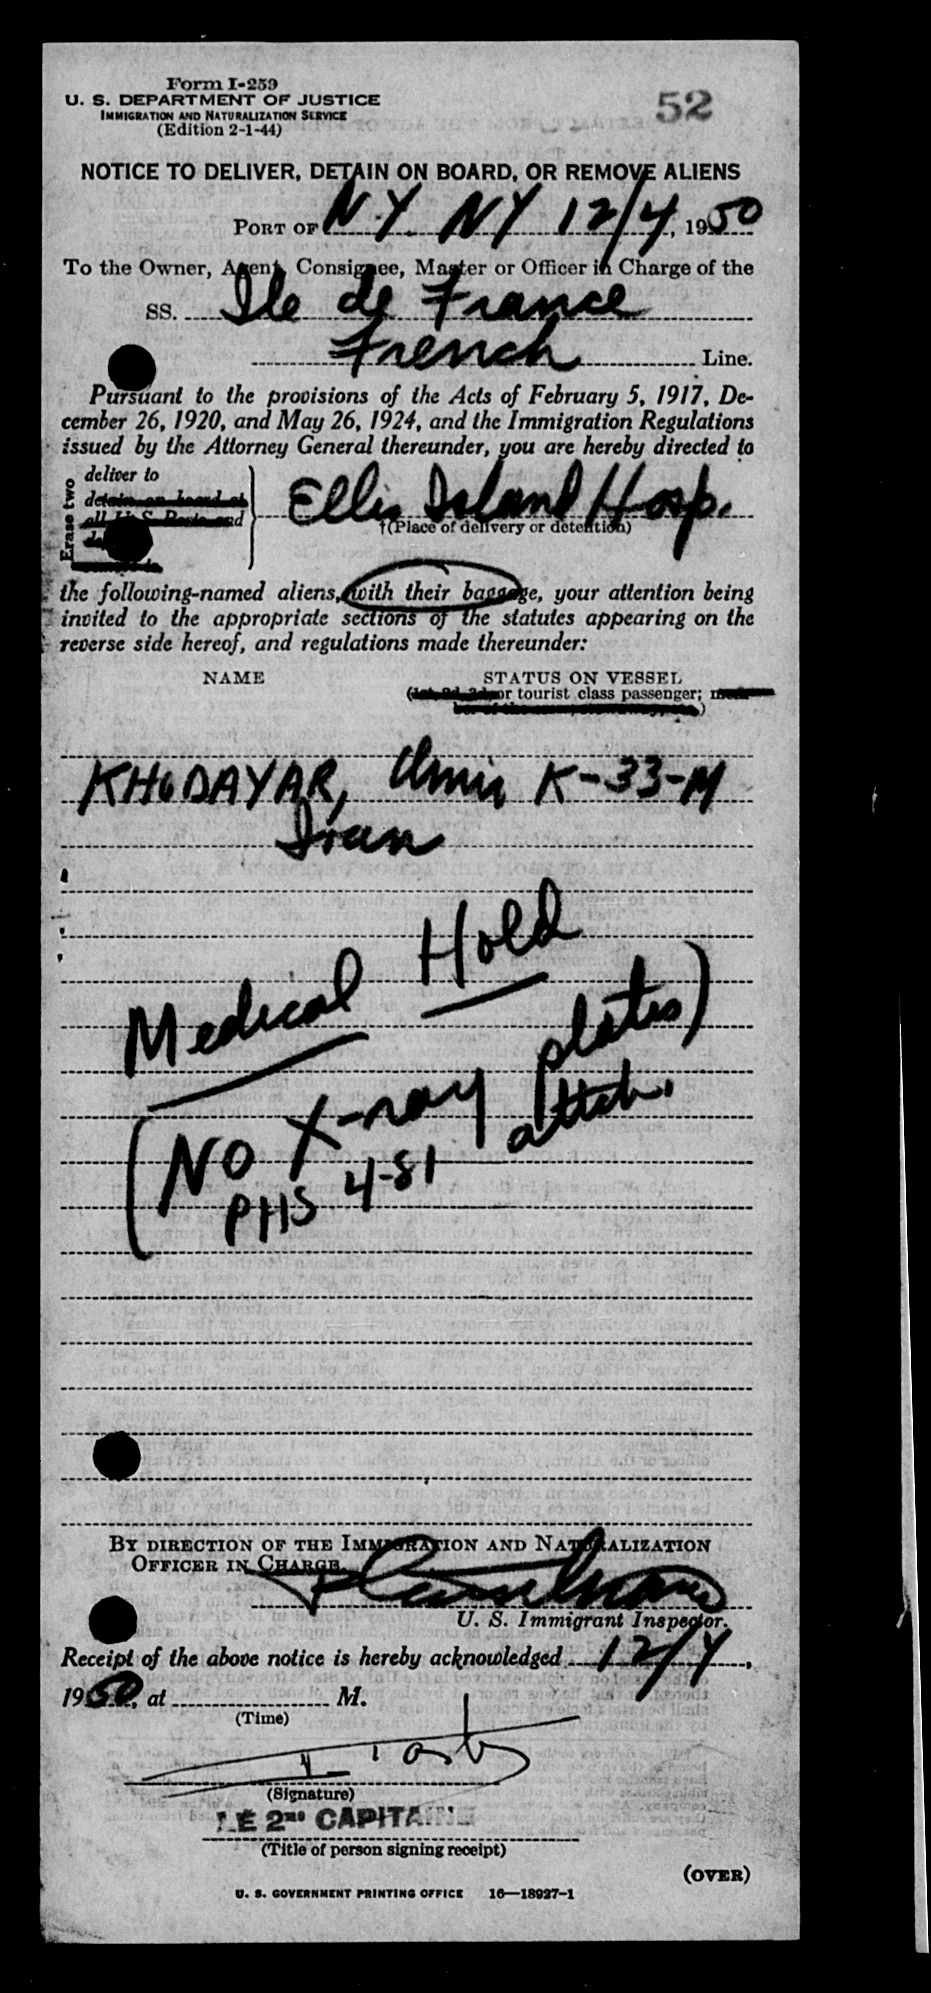 Form I-259
U. S. DEPARTMENT OF JUSTICE
IMMIGRATION AND NATURALIZATION SERVICE
(Edition 2-1-44)
52
NOTICE TO DELIVER, DETAIN ON BOARD, OR REMOVE ALIENS
PORT OF N.Y. NY 12/4, 1950
To the Owner, Agent, Consignee, Master or Officer in Charge of the
SS. Ile de France
French Line.
Pursuant to the provisions of the Acts of February 5, 1917, De-
cember 26, 1920, and May 26, 1924, and the Immigration Regulations
issued by the Attorney General thereunder, you are hereby directed to
Erase two
deliver to
detain on board at
all U. S. Ports and
Ellis Island Hosp.
†(Place of delivery or detention)
the following-named aliens, with their baggage, your attention being
invited to the appropriate sections of the statutes appearing on the
reverse side hereof, and regulations made thereunder:
NAME
STATUS ON VESSEL
(1st, 2d, 3d, or tourist class passenger; mem-
ber of the crew, stowaway, etc.)
KHODAYAR, Amir K-33-M
Iran
Medical Hold
(NO X-ray plates)
PHS 4-81 attch.
BY DIRECTION OF THE IMMIGRATION AND NATURALIZATION
OFFICER IN CHARGE
U. S. Immigrant Inspector.
Receipt of the above notice is hereby acknowledged 12/4,
1950, at M.
(Time)
(Signature)
LE 2ND CAPITAINE
(Title of person signing receipt)
(OVER)
U. S. GOVERNMENT PRINTING OFFICE 16—18927-1